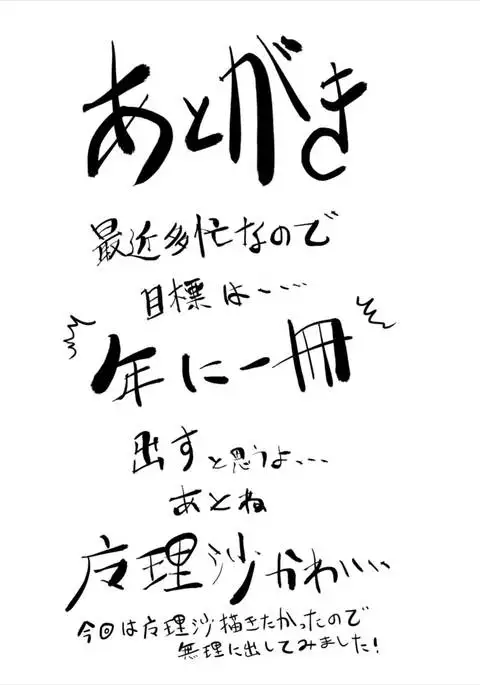 あとがき
最近多忙なので
目標は、、、、
年に一冊
出すと思うよ、、、
あとね
广理沙かわいい、、
今回は广理沙描きたかったので
無理に出してみました!